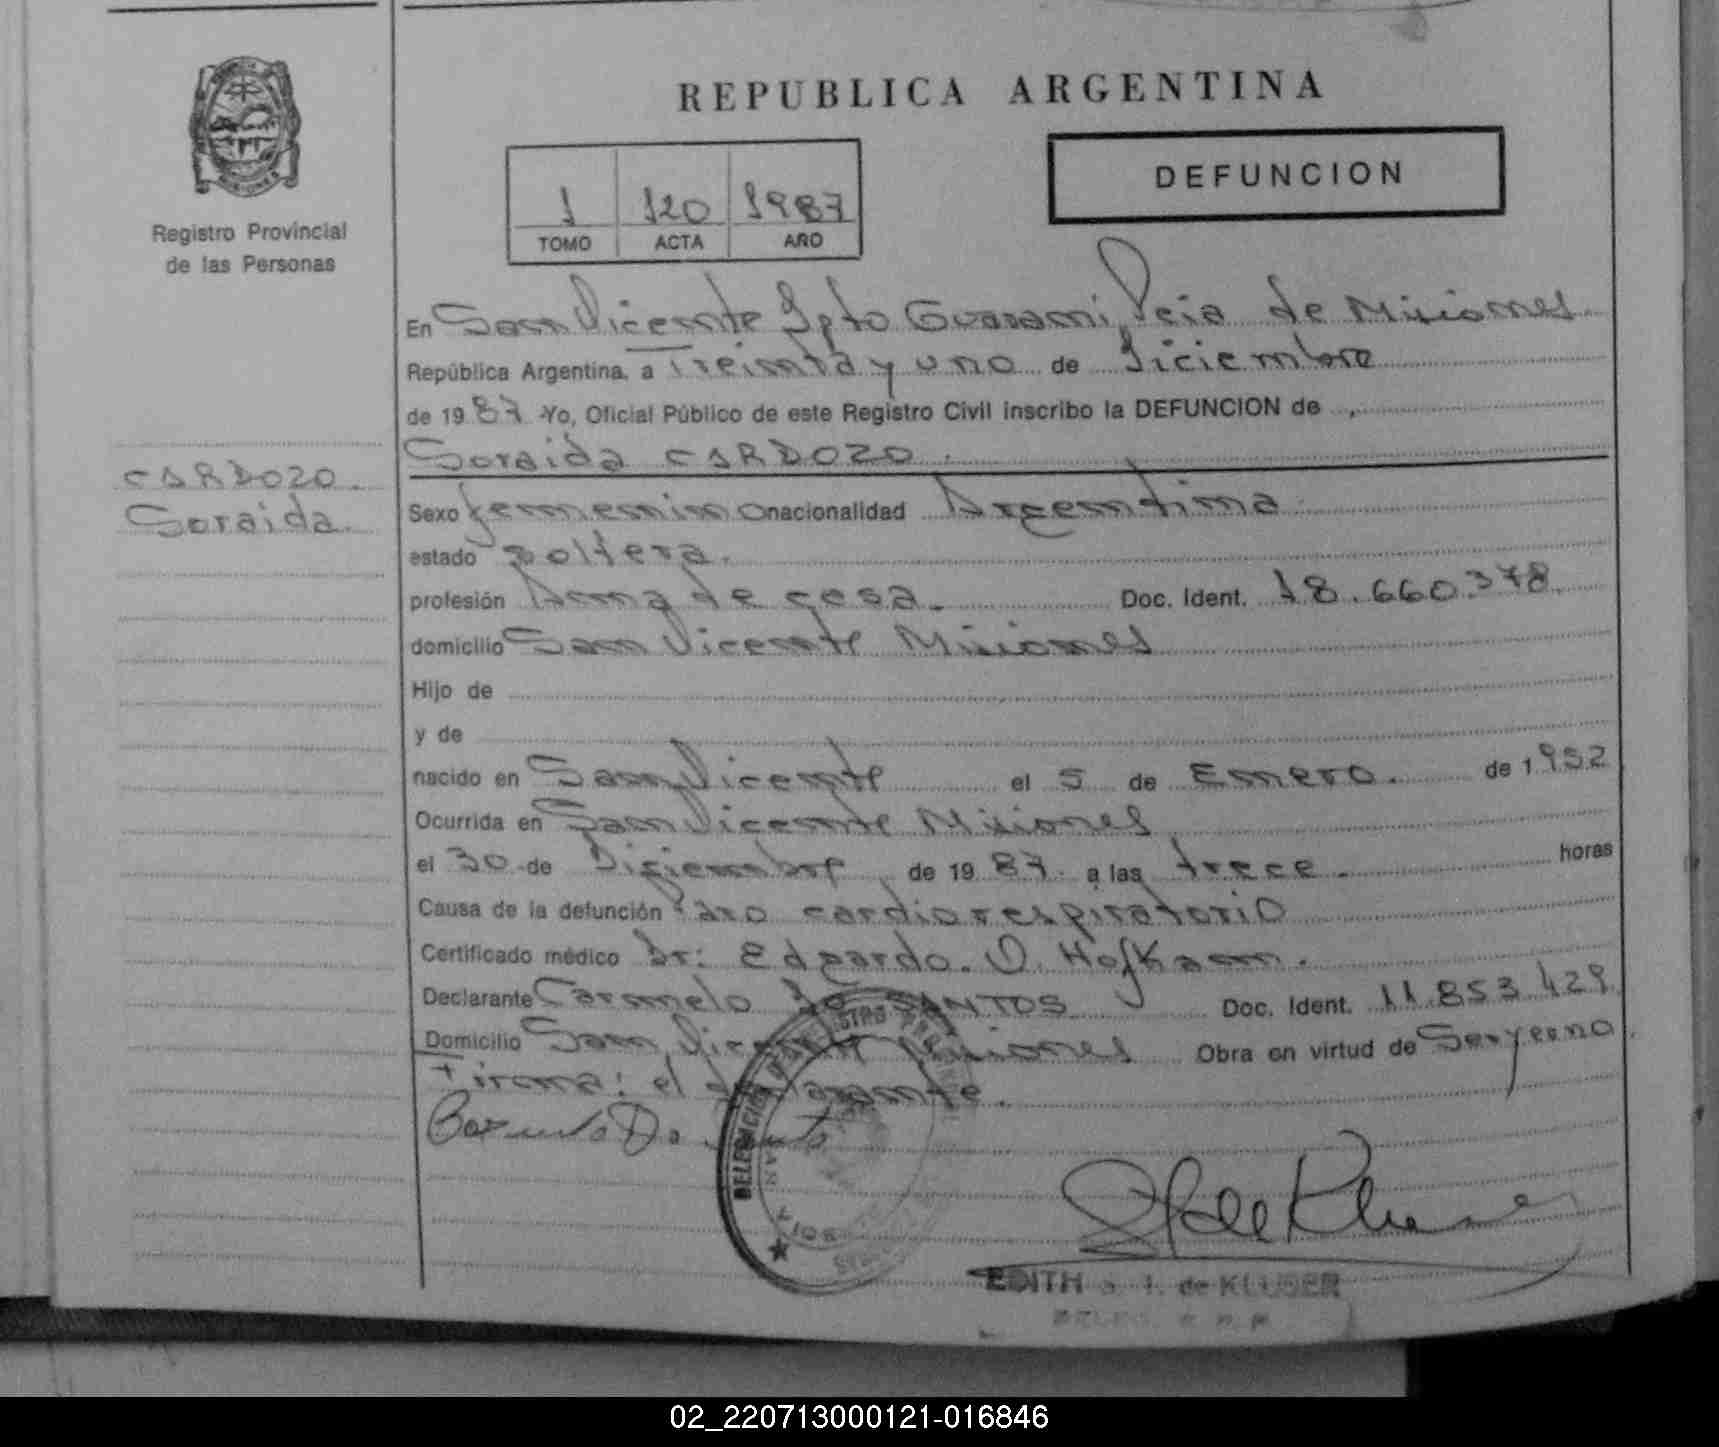 REPUBLICA ARGENTINA
DEFUNCION
1 120 1987
TOMO ACTA AÑO
MISIONES
Registro Provincial
de las Personas
CARDOZO.
Soraida.
En San Vicente Dpto Guarani, Pcia de Misiones.
República Argentina, a Treinta y uno de Diciembre
de 1987 Yo, Oficial Público de este Registro Civil inscribo la DEFUNCION de
Soraida CARDOZO.
Sexo femenino nacionalidad Argentina
estado soltera.
profesión Ama de casa. Doc. Ident. 18.660.378.
domicilio San Vicente Misiones
Hijo de
y de
nacido en San Vicente el 5 de Enero. de 1952
Ocurrida en San Vicente Misiones
el 30 de Diciembre de 1987. a las trece. horas
Causa de la defunción Paro cardiorespiratorio
Certificado médico Dr: Edgardo. O. Hofkamn.
Declarante Carmelo Do SANTOS Doc. Ident. 11.853.429
Domicilio San Vicente Misiones Obra en virtud de Ser yerno.
Firma: el declarante.
EDITH de KLUSER
02_220713000121-016846